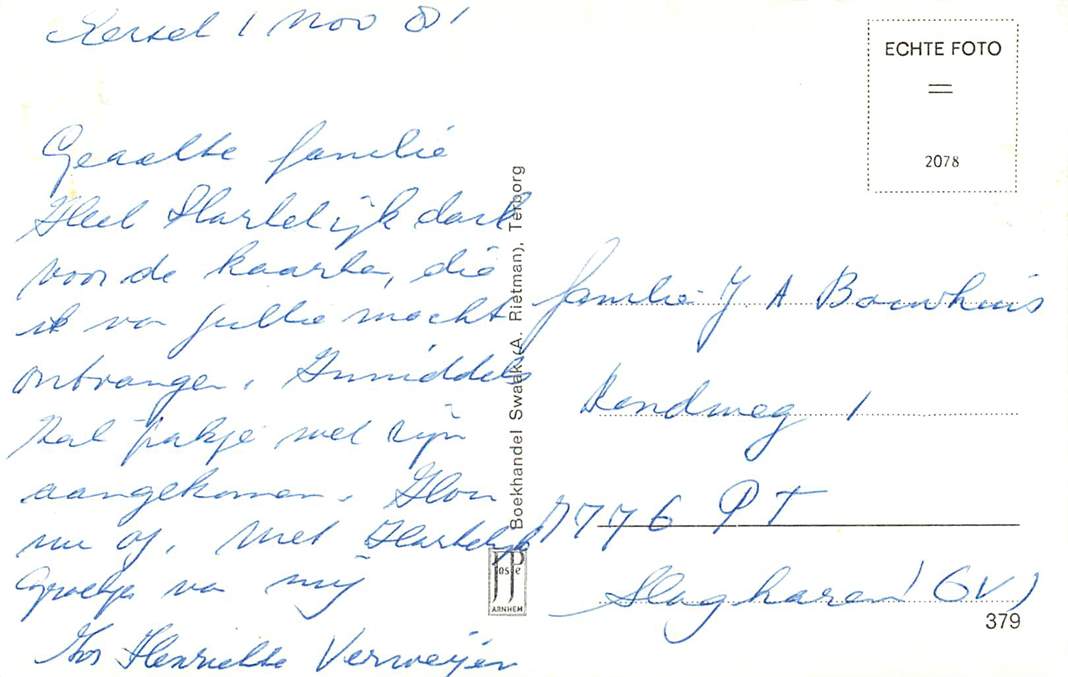 1 Nov 81
Geachte familie
Heel Hartelijk dank
voor de kaarten, die
ik van jullie mocht
ontvangen. Inmiddels
zal pakje wel zijn
aangekomen. Hou
nu op, met Hartelijk
groetjes van mij
Henriette Verweijen
ECHTE FOTO
2078
Boekhandel Swaak (A. Rietman), Terborg
JosPe
ARNHEM
familie J A Bouwhuis
1
7776 PT
Slagharen (OV)
379